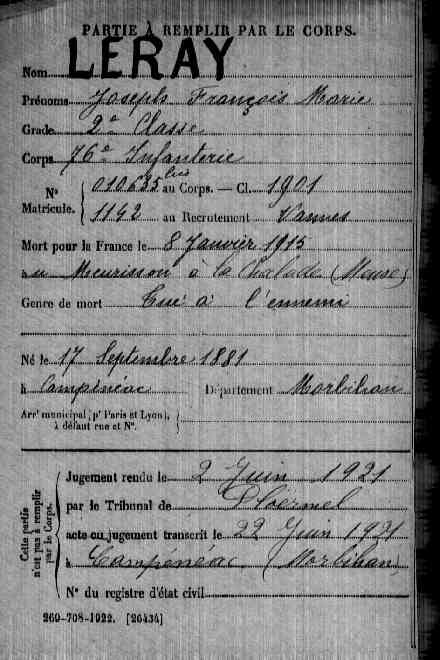 PARTIE À REMPLIR PAR LE CORPS.
Nom LERAY
Prénoms Joseph François Marie
Grade 2e Classe
Corps 76e Infanterie
Nº Matricule. 010635 bis au Corps. — Cl. 1901
1142 au Recrutement Vannes
Mort pour la France le 8 Janvier 1915
au Meurisson à la Chalade (Meuse)
Genre de mort Tué à l'ennemi
Né le 17 Septembre 1881
à Campénéac Département Morbihan
Arrt municipal (pr Paris et Lyon), à défaut rue et Nº.
Cette partie n'est pas à remplir par le Corps.
Jugement rendu le 2 Juin 1921
par le Tribunal de Ploermel
acte ou jugement transcrit le 22 Juin 1921
à Campénéac (Morbihan)
Nº du registre d'état civil
260-708-1922. [26434]